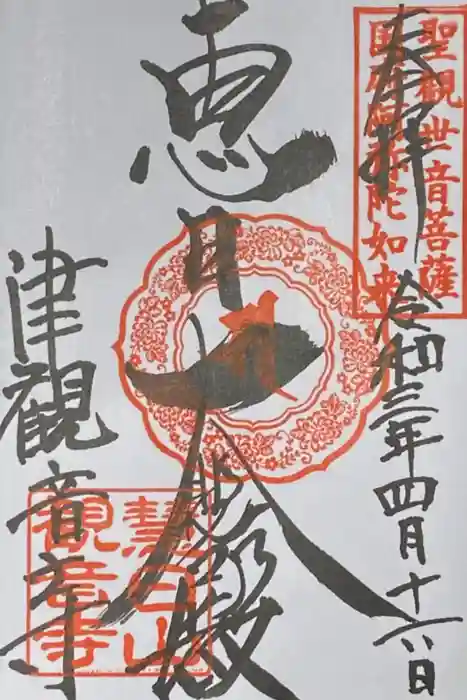 聖観世音菩薩
国府阿弥陀如来
奉拝
令和三年四月十六日
恵日大殿
津観音寺
慧日山
観音寺